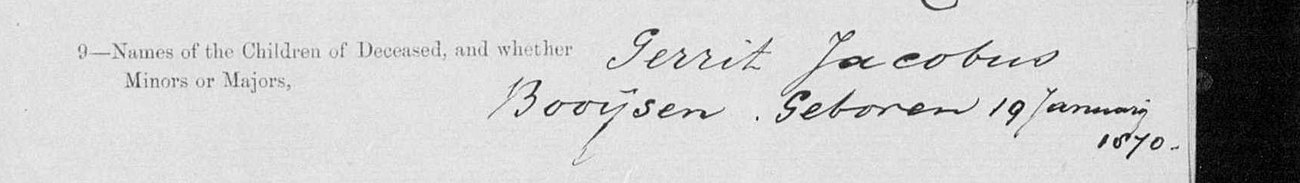 9—Names of the Children of Deceased, and whether
Minors or Majors,
Gerrit Jacobus
Booÿsen. Geboren 19 Januarij
1870.